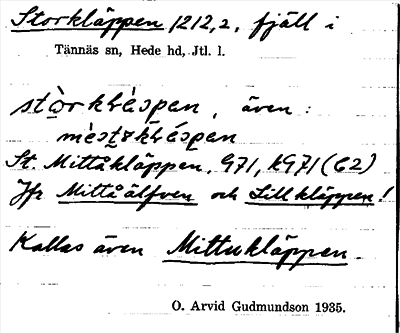 Storkläppen 1212,2, fjäll i
Tännäs sn, Hede hd, Jtl. l.
även:
St. Mittåkläppen. G71, KG71 (C2)
Jfr Mittåälfven och Lillkläppen!
Kallas även Mittukläppen.
O. Arvid Gudmundson 1935.